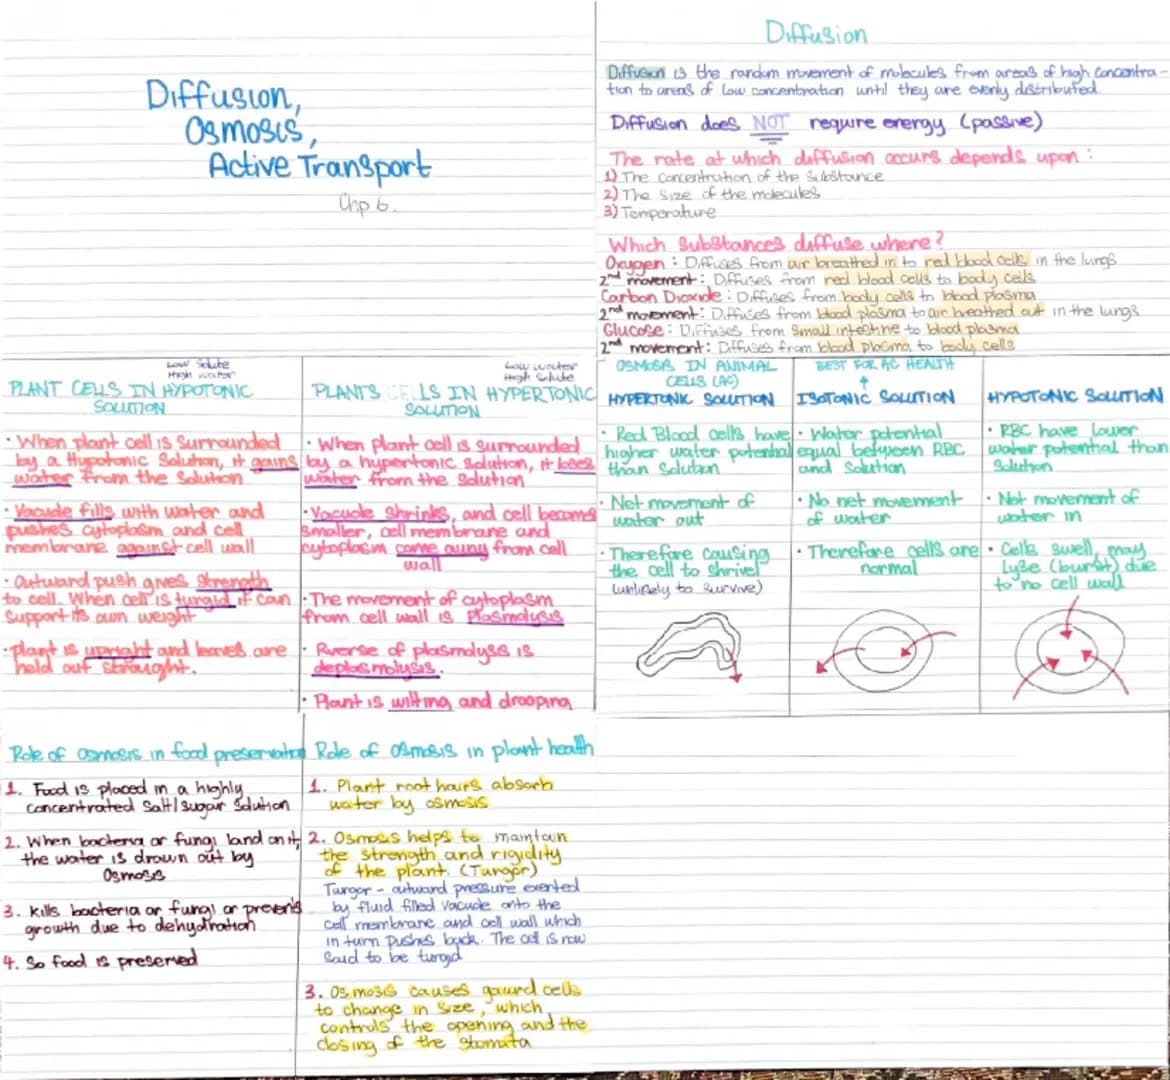 Diffusion,
Osmosis,
Active Transport
Chp 6.
Diffusion
Diffusion is the random movement of molecules from areas of high concentra-
tion to areas of low concentration until they are evenly distributed.
Diffusion does NOT require energy (passive)
The rate at which diffusion occurs depends upon :
1) The concentration of the Substance
2) The Size of the molecules
3) Temperature
Which Substances diffuse where?
Oxygen : Diffuses from air breathed in to red blood cells in the lungs
2nd movement: Diffuses from red blood cells to body cells
Carbon Dioxide : Diffuses from body cells to blood plasma
2nd movement: Diffuses from blood plasma to air breathed out in the lungs
Glucose : Diffuses from Small intestine to blood plasma
2nd movement: Diffuses from blood plasma to body cells
Low Solute
High water
PLANT CELLS IN HYPOTONIC
SOLUTION
· When plant cell is Surrounded
by a Hypotonic Solution, it gains
water from the Solution
· Vacuole fills with water and
pushes cytoplasm and cell
membrane against cell wall
· Outward push gives Strength
to cell. When cell is turgid it can
Support its own weight
· plant is upright and leaves are
held out straught.
Low water
High Solute
PLANTS CELLS IN HYPERTONIC
SOLUTION
· When plant cell is surrounded
by a hypertonic solution, it loses
water from the Solution
· Vacuole Shrinks, and cell becomes
Smaller, cell membrane and
cytoplasm come away from cell
wall
· The movement of cytoplasm
from cell wall is Plasmolysis
· Rverse of plasmolysis is
deplasmolysis.
· Plant is wilting and drooping
OSMOSIS IN ANIMAL
CELLS (AC)
HYPERTONIC SOLUTION
· Red Blood cells have
higher water potential
than Solution
· Net movement of
water out
· Therefore causing
the cell to shrivel
(unlikely to Survive)
BEST FOR AC HEALTH
ISOTONIC SOLUTION
· Water potential
equal between RBC
and Solution
· No net movement
of water
· Therefore cells are
normal
HYPOTONIC SOLUTION
· RBC have lower
water potential than
Solution
· Net movement of
water in
· Cells swell, may
lyse (burst) due
to no cell wall
Role of Osmosis in food preservation
1. Food is placed in a highly
concentrated Salt/Sugar Solution
2. When bacteria or fungi land on it,
the water is drawn out by
Osmosis
3. Kills bacteria or fungi or prevents
growth due to dehydration
4. So food is preserved
Role of Osmosis in plant health
1. Plant root hairs absorb
water by osmosis
2. Osmosis helps to maintain
the strength and rigidity
of the plant. (Turgor)
Turgor - outward pressure exerted
by fluid filled vacuole onto the
cell membrane and cell wall which
in turn pushes back. The cell is now
Said to be turgid
3. Osmosis causes gaurd cells
to change in Size, which
controls the opening and the
closing of the Stomata